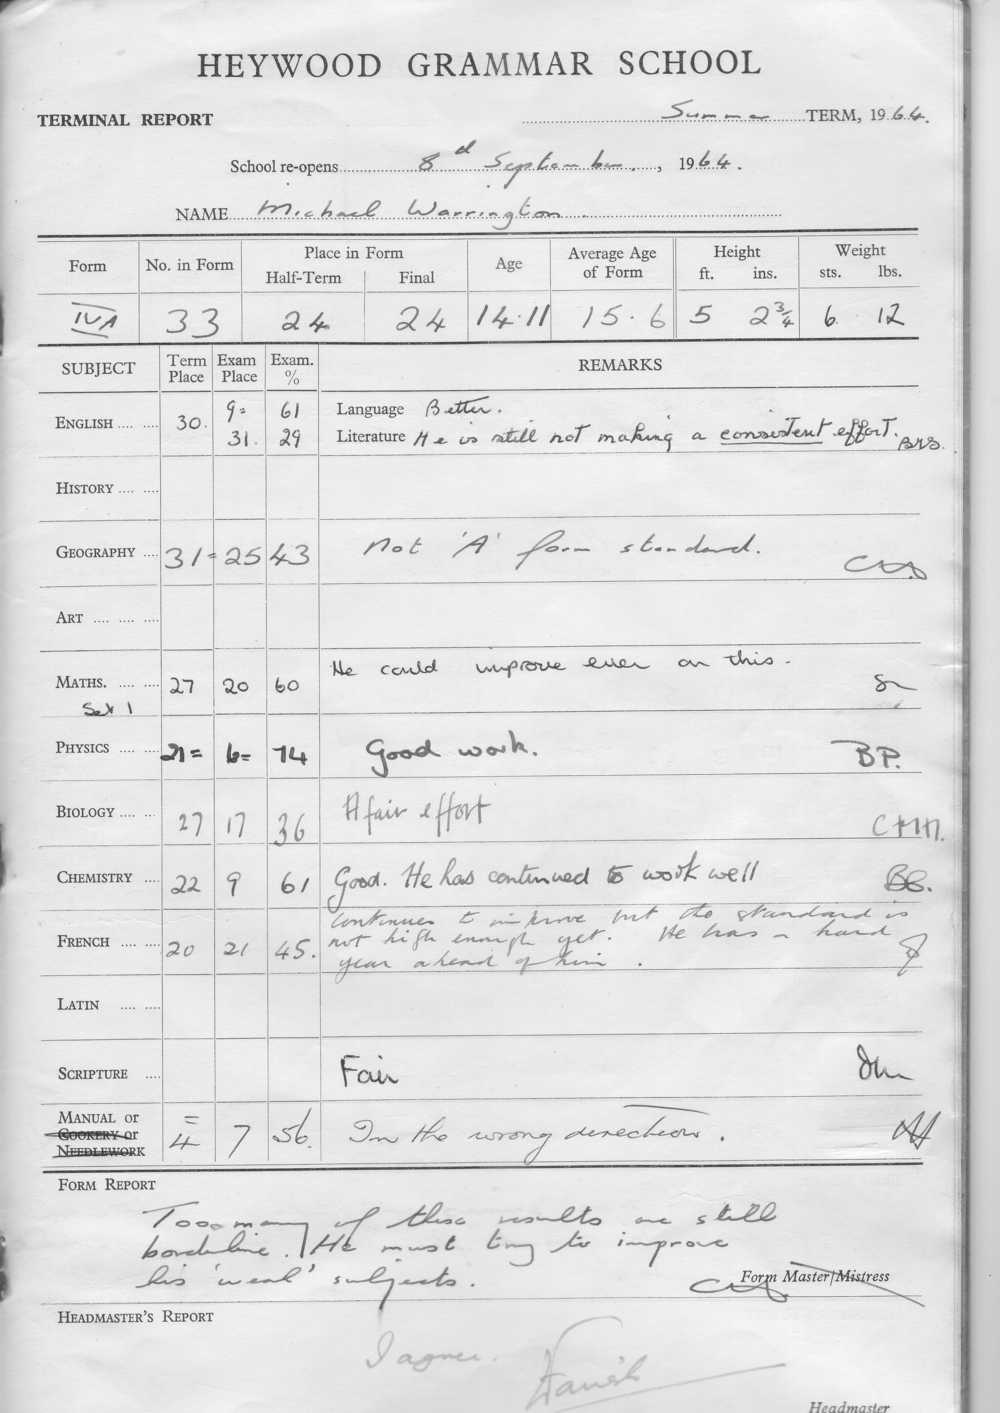 HEYWOOD GRAMMAR SCHOOL
TERMINAL REPORT Summer TERM, 1964.
School re-opens 8th September, 1964.
NAME Michael Warrington
Form No. in Form Place in Form Half-Term Final Age Average Age of Form Height ft. ins. Weight sts. lbs.
IVA 33 24 24 14.11 15.6 5 2¾ 6 12
SUBJECT Term Place Exam Place Exam. % REMARKS
ENGLISH 30. 9= 61 Language Better.
31. 29 Literature He is still not making a consistent effort.
HISTORY
GEOGRAPHY 31= 25 43 Not 'A' form standard.
ART
MATHS. 27 20 60 He could improve even on this.
Set 1
PHYSICS 21= 6= 74 Good work. BP.
BIOLOGY 27 17 36 A fair effort
CHEMISTRY 22 9 61 Good. He has continued to work well
FRENCH 20 21 45. Continues to improve but the standard is
not high enough yet. He has a hard
year ahead of him.
LATIN
SCRIPTURE Fair
MANUAL or COOKERY or NEEDLEWORK =4 7 56. In the wrong direction.
FORM REPORT
Too many of these results are still
borderline. He must try to improve
his 'weak' subjects.
Form Master/Mistress
HEADMASTER'S REPORT
I agree.
Headmaster